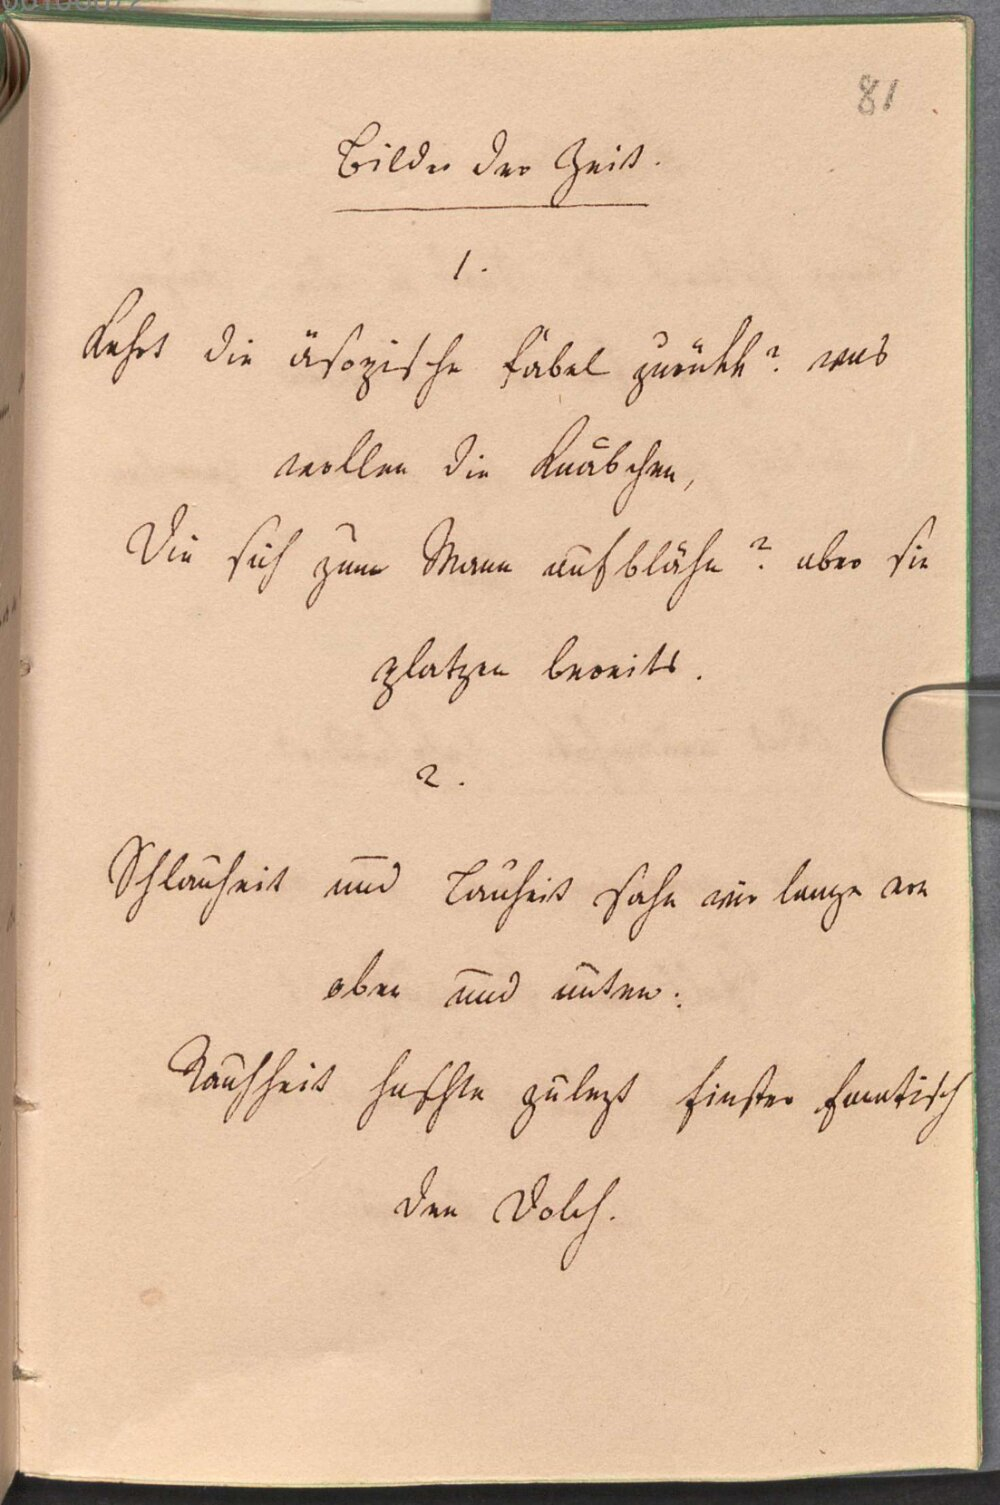 81
Bilder der Zeit.
1.
Kehrt die äsopische Fabel zurükk? was
wollen die Knäbchen,
Die sich zum Mann aufblähn? aber sie
platzen bereits.
2.
Schlauheit und Lauheit sahn wir lange von
oben und unten:
Rauhheit haschte zulezt finster fanatisch
den Dolch.